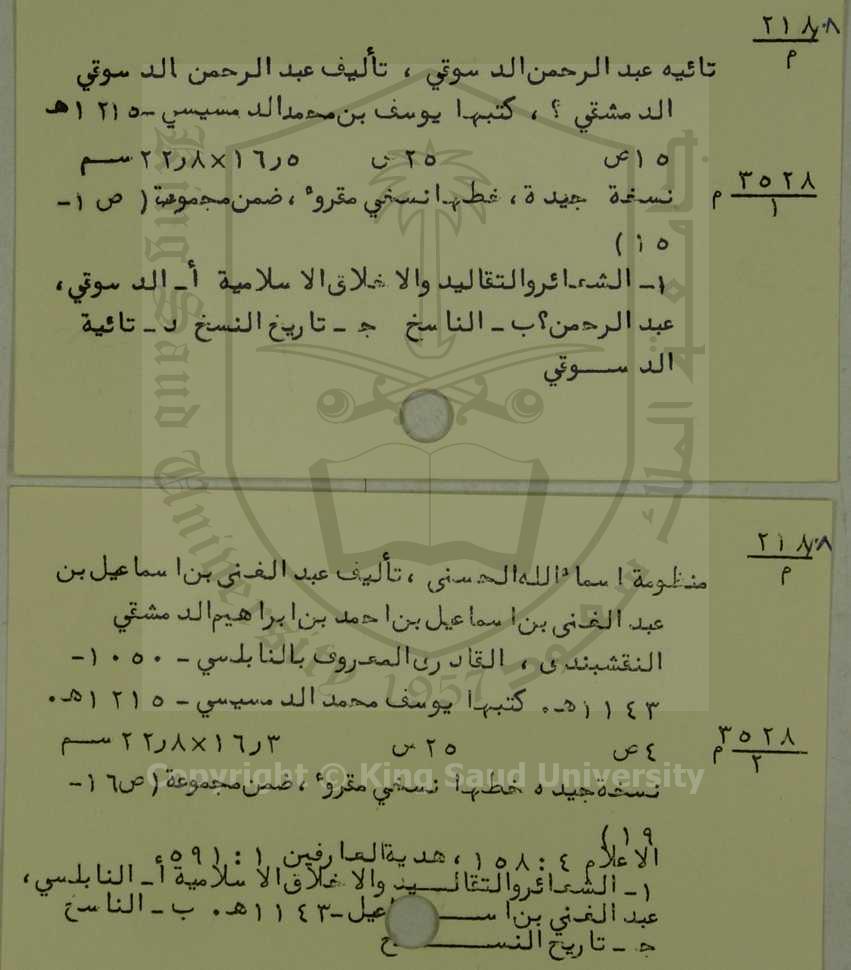 ٢١٨٠٨
م
تائيه عبد الرحمن الدسوقي ، تأليف عبد الرحمن الدسوقي
الدمشقي ؟ ، كتبها يوسف بن محمد الدمسيسي -١٢١٥هـ
١٥ص ٢٥س ١٦٫٥×٢٢٫٨سم
٣٥٢٨ م
١
نسخة جيدة ، خطها نسخي مقروء ، ضمن مجموعة ( ص ١-
١٥ )
١- الشعائر والتقاليد والاخلاق الاسلامية أ- الدسوقي،
عبد الرحمن؟ ب - الناسخ جـ - تاريخ النسخ د - تائية
الدســوقي
٢١٨٠٨
م
منظومة اسماء الله الحسنى ، تأليف عبد الغنى بن اسماعيل بن
عبد الغنى بن اسماعيل بن احمد بن ابراهيم الدمشقي
النقشبندى ، القادرى المعروف بالنابلسي - ١٠٥٠-
١١٤٣هـ. كتبها يوسف محمد الدمسيسي - ١٢١٥هـ.
٤ص ٢٥س ١٦٫٣×٢٢٫٨سم
٣٥٢٨ م
٢
نسخة جيده خطها نسخي مقروء ، ضمن مجموعة ( ص١٦-
١٩)
الاعلام ٤ : ١٥٨ ، هدية العارفين ١ : ٥٩١
١- الشعائر والتقاليـد والاخلاق الاسلامية أ- النابلسي،
عبد الغني بن اســماعيل-١١٤٣هـ. ب - الناسخ
جـ - تاريخ النســـخ
King Saud University
جامعة الملك سعود
1957
Copyright © King Saud University